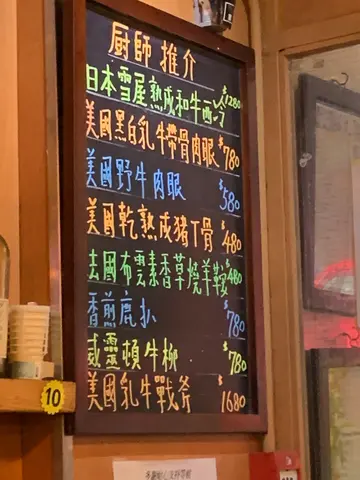 廚師推介
日本雪屋熟成和牛西冷 $1280
美國黑白乳牛帶骨肉眼 $780
美國野牛肉眼 $580
美國乾熟成豬T骨 $480
法國布雲素香草燒羊鞍 $480
香煎鹿扒 $780
威靈頓牛柳 $780
美國乳牛戰斧 $1680
10